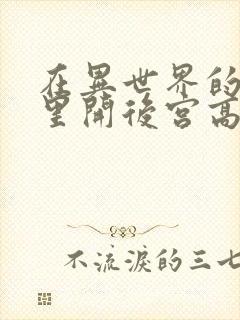 在異世界的
里開後宮高
不流淚的三七